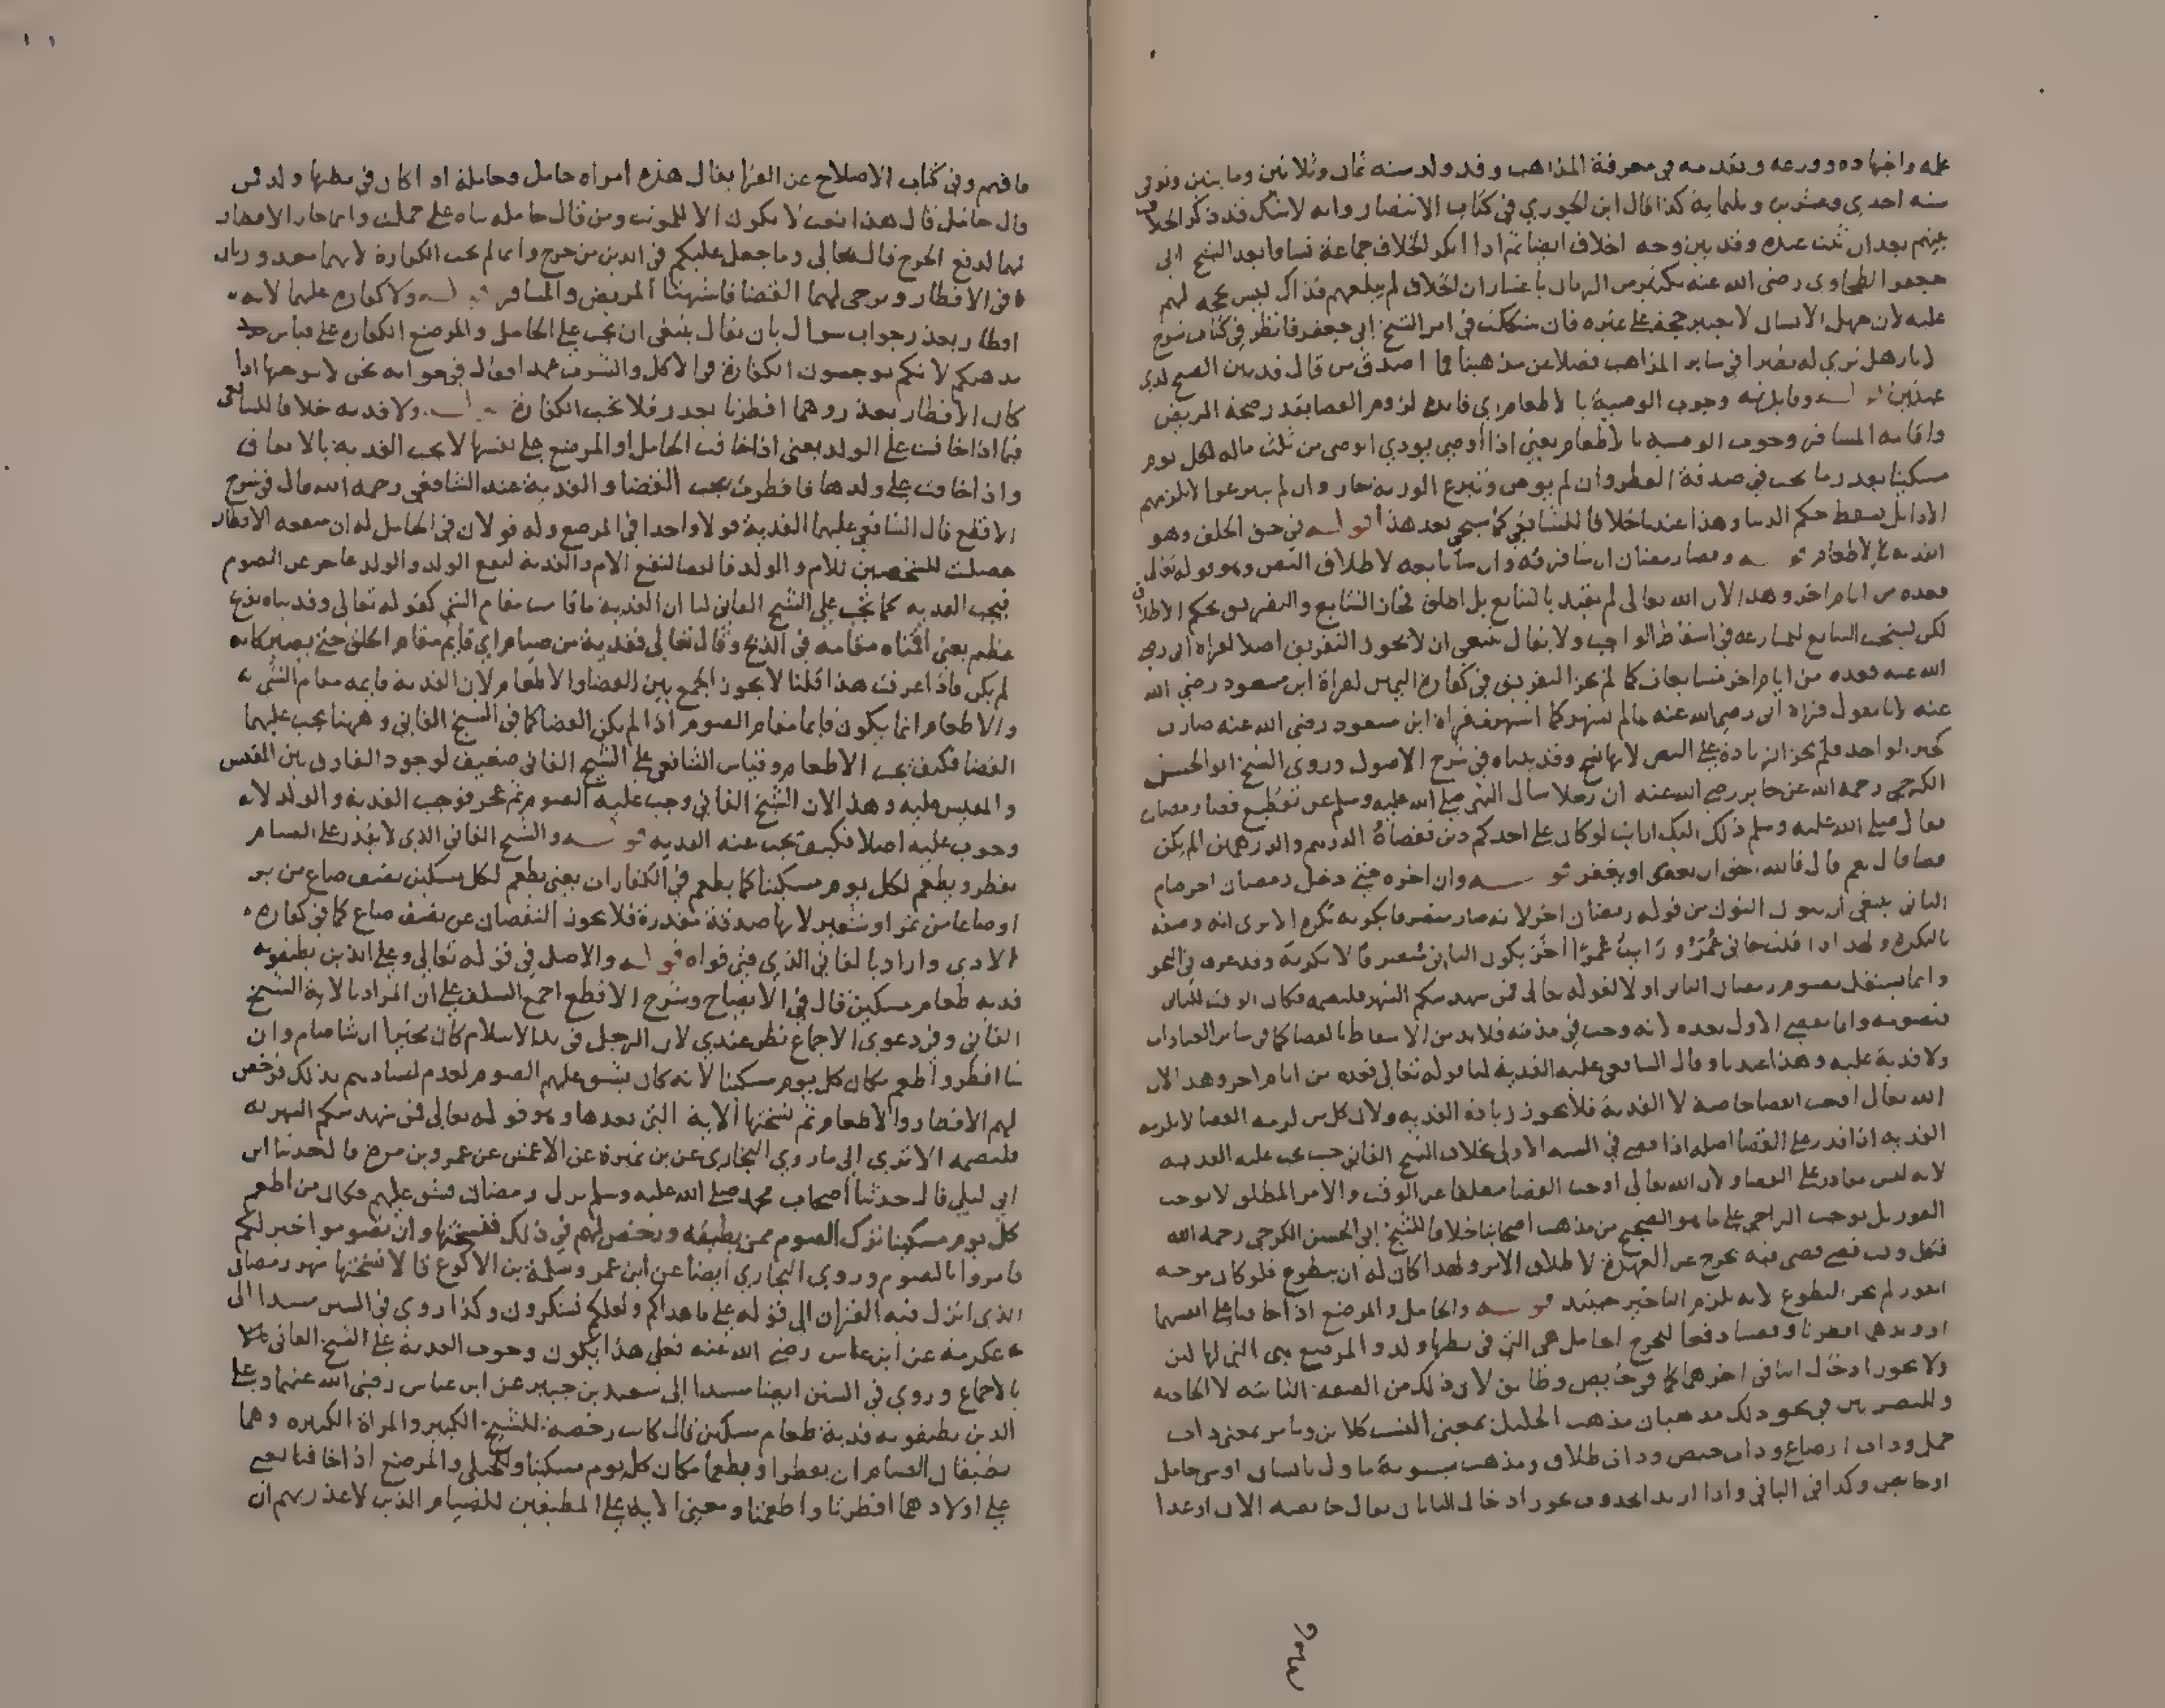 علمه واجتهاده وورعه وتقدمه في معرفة المذاهب وقد ولد سنه ثمان وثلاثين وماتين وتوفي
سنه احدي وعشرين وثلماية كذا قال ابن الجوزي في كتاب الانتصار وانه لا شك قد ذكر الخلاف
بينهم بعد ان ثبت عنده وقد بين وجه اخلاف ايضا ثم اذا انكر الخلاف جماعة نساوا بعد الشيخ ابي
جعفر الطحاوي رضي الله عنه بكثير من الزمان باعتبار ان الخلاف لم يبلغهم فذاك ليس بحجه لهم
عليه لان جهل الانسان لا يعتبر حجة على غيره فان شككت في امر الشيخ ابي جعفر فانظر في كتاب شرح
الاثار هل تري له نظيرا في ساير المذاهب فضلا عن مذهبنا فما اصدق من قال قد بين الصبح لذي
عينين قوله وفايدته وجوب الوصية بالاطعام اي فايده لزوم القضا بقدر صحة المريض
واقامه المسافر وجوب الوصيه بالاطعام يعني اذا اوصي يودي الوصي من ثلث ماله لكل يوم
مسكينا بقدر ما يجب في صدقة الفطر وان لم يوص وتبرع الورثه جاز وان لم يتبرعوا لا يلزمهم
الادا بل يسقط حكم الدنيا وهذا عندنا خلافا للشافعي كما سيجي بعد هذا قوله في حق الخلف وهو
الفديه بالاطعام قوله وقضا رمضان ان شا فرقه وان شا تابعه لاطلاق النص وهو قوله تعالى
فعده من ايام اخر وهذا لان الله تعالى لم يقيد بالتتابع بل اطلق فجاز التتابع والتفريق بحكم الاطلاق
لكن يستحب التتابع للمسارعه في اسقاط الواجب ولا يقال ينبغي ان لا يجوز التفريق اصلا لقراة ابي رضي
الله عنه فعده من ايام اخر متتابعات كما لم يجز التفريق في كفارة اليمين لقراة ابن مسعود رضي الله
عنه لانا نقول قراة ابي رضي الله عنه ما لم تشتهر كما اشتهرت قراة ابن مسعود رضي الله عنه صارت
كخبر الواحد فلم يجز الزيادة على النص لانها نسخ وقد بيناه في شرح الاصول وروي الشيخ ابو الحسن
الكرخي رحمه الله عن جابر رضي الله عنه ان رجلا سال النبي صلى الله عليه وسلم عن تقطيع قضا رمضان
فقال صلى الله عليه وسلم ذلك اليك ارايت لو كان على احدكم دين فقضاه الدرهم والدرهمين الم يكن
قضا قال نعم قال فالله احق ان يعفو او يغفر قوله وان اخره حتي دخل رمضان اخر صام
الثاني ينبغي ان يكون التنوين من قوله رمضان اخر لانه صار منصرفا بكونه نكره الا تري انه وصفه
بالنكره ولهذا اذا قلت جاني عمر ورايت عمرا اخر يكون الثاني منصرفا لانكرته وقد عرف في النحو
وانما يشتغل بصوم رمضان الثاني اولا لقوله تعالى فمن شهد منكم الشهر فليصمه فكان الوقت للثاني
فيصومه وانما يقضي الاول بعده لانه وجب في ذمته فلا بد من الاسقاط بالقضا كما في ساير العبادات
ولا فدية عليه وهذا عندنا وقال الشافعي عليه الفدية لنا قوله تعالى فعده من ايام اخر وهذا لان
الله تعالى اوجب القضا خاصة لا الفدية فلا يجوز زيادة الفديه ولان كل من لزمه القضا لا يلزمه
الفديه اذا قدر على القضا اصله اذا قضي في السنه الاولى بخلاف الشيخ الفاني حيث يجب عليه الفديه
لانه ليس بقادر على القضا ولان الله تعالى اوجب القضا مطلقا عن الوقت والامر المطلق لا يوجب
الفور بل يوجب التراخي على ما هو الصحيح من مذهب اصحابنا خلافا للشيخ ابي الحسن الكرخي رحمه الله
ففي كل وقت قضي فيه يخرج عن العهدة لاطلاق الامر ولهذا كان له ان يتطوع فلو كان موجبه
الفور لم يجز التطوع لانه يلزم التاخير حينئذ قوله والحامل والمرضع اذا خافتا على انفسهما
او ولديهما افطرتا وقضتا دفعا للحرج الحامل هي التي في بطنها ولد والمرضع هي التي لها لبن
ولا يجوز ادخال التا في اخرهما كما في حايض وطالق لان ذلك من الصفة الثابته لا الحادثه
وللبصريين في نحو ذلك مذهبان مذهب الخليل بمعني النسب كلابن وتامر بمعني ذات
حمل وذات ارضاع وذات حيض وذات طلاق ومذهب سيبويه ماول بانسان او شي حامل
او حايض وكذا في الباقي واذا اريد الحدوث يجوز ادخال التا بان يقال حايضه الان او غدا
وسم
ما فهم وفي كتاب الاصلاح عن الفرا يقال هذه امراه حامل وحاملة اذا كان في بطنها ولد فمن
قال حامل قال هذا نعت لا يكون الا للمونث ومن قال حاملة بناه على حملت وانما جاز الافطار
لهما لدفع الحرج قال تعالى وما جعل عليكم في الدين من حرج وانما لم يجب الكفارة لانهما معذورتان
في الافطار ويرجي لهما القضا فاشبهتا المريض والمسافر قوله ولا كفاره عليهما لانه
افطار بعذر جواب سوال بان يقال ينبغي ان يجب على الحامل والمرضع الكفاره على قياس
مذهبكم لانكم توجبون الكفارة في الاكل والشرب عمدا فقال في جوابه نحن لا نوجبها اذا
كان الافطار بعذر وهما افطرتا بعذر فلا يجب الكفارة قوله ولا فديه خلافا للشافعي
فيما اذا خافت على الولد يعني اذا خافت الحامل او المرضع على نفسها لا يجب الفدية بالاتفاق
واذا خافت على ولدها فافطرت يجب القضا والفدية عند الشافعي رحمه الله قال في شرح
الاقطع قال الشافعي عليهما الفدية قولا واحدا في المرضع وله قولان في الحامل له ان منفعه الافطار
حصلت للشخصين للام والولد فالقضا لنفع الام والفدية لنفع الولد والولد عاجز عن الصوم
فيجب الفديه كما يجب على الشيخ الفاني لنا ان الفدية ما قامت مقام الشي كقوله تعالى وفديناه بذبح
عظيم يعني اقمناه مقامه في الذبح وقال تعالى ففدية من صيام اي قايم مقام الحلق حتي يصير كانه
لم يكن فاذا عرفت هذا قلنا لا يجوز الجمع بين القضا والاطعام لان الفدية قايمه مقام الشي
والاطعام انما يكون قايما مقام الصوم اذا لم يكن القضا كما في الشيخ الفاني وههنا يجب عليهما
القضا فكيف يجب الاطعام وقياس الشافعي على الشيخ الفاني ضعيف لوجود الفارق بين المقيس
والمقيس عليه وهذا لان الشيخ الفاني وجب عليه الصوم ثم عجز فوجب الفدية والولد لا
وجوب عليه اصلا فكيف يجب عنه الفديه قوله والشيخ الفاني الذي لا يقدر على الصيام
يفطر ويطعم لكل يوم مسكينا كما يطعم في الكفارات يعني يطعم لكل مسكين نصف صاع من بر
او صاعا من تمر او شعير لانها صدقة مقدرة فلا يجوز النقصان عن نصف صاع كما في كفاره
الاذي واراد بالفاني الذي فني قواه قوله والاصل في قوله تعالى وعلى الذين يطيقونه
فديه طعام مسكين قال في الايضاح وشرح الاقطع اجمع السلف على ان المراد بالاية الشيخ
الفاني وفي دعوي الاجماع نظر عندي لان الرجل في بدا الاسلام كان مخيرا ان شا صام وان
شا افطر واطعم مكان كل يوم مسكينا لانه كان يشق عليهم الصوم لعدم اعتيادهم بذلك فرخص
لهم الافطار والاطعام ثم نسختها الاية التي بعدها وهو قوله تعالى فمن شهد منكم الشهر
فليصمه الا تري الى ما روي البخاري عن بن نميرة عن الاعمش عن عمرو بن مرة قال حدثنا ابن
ابي ليلي قال حدثنا اصحاب محمد صلى الله عليه وسلم نزل رمضان فشق عليهم فكان من اطعم
كل يوم مسكينا ترك الصوم ممن يطيقه ورخص لهم في ذلك فنسختها وان تصوموا خير لكم
فامروا بالصوم وروي البخاري ايضا عن ابن عمر وسلمة بن الاكوع قالا نسختها شهر رمضان
الذي انزل فيه القران الى قوله على ما هداكم ولعلكم تشكرون وكذا روي في السنن مسندا الى
عكرمة عن ابن عباس رضي الله عنه فعلي هذا يكون وجوب الفدية على الشيخ الفاني
بالاجماع وروي في السنن ايضا مسندا الى سعيد بن جبير عن ابن عباس رضي الله عنهما وعلى
الذين يطيقونه فدية طعام مسكين قال كانت رخصة للشيخ الكبير والمراة الكبيره وهما
يطيقان الصيام ان يفطرا ويطعما مكان كل يوم مسكينا والحبلي والمرضع اذا خافتا يعني
على اولادهما افطرتا واطعمتا ومعني الاية على المطيقين للصيام الذين لا عذر بهم ان